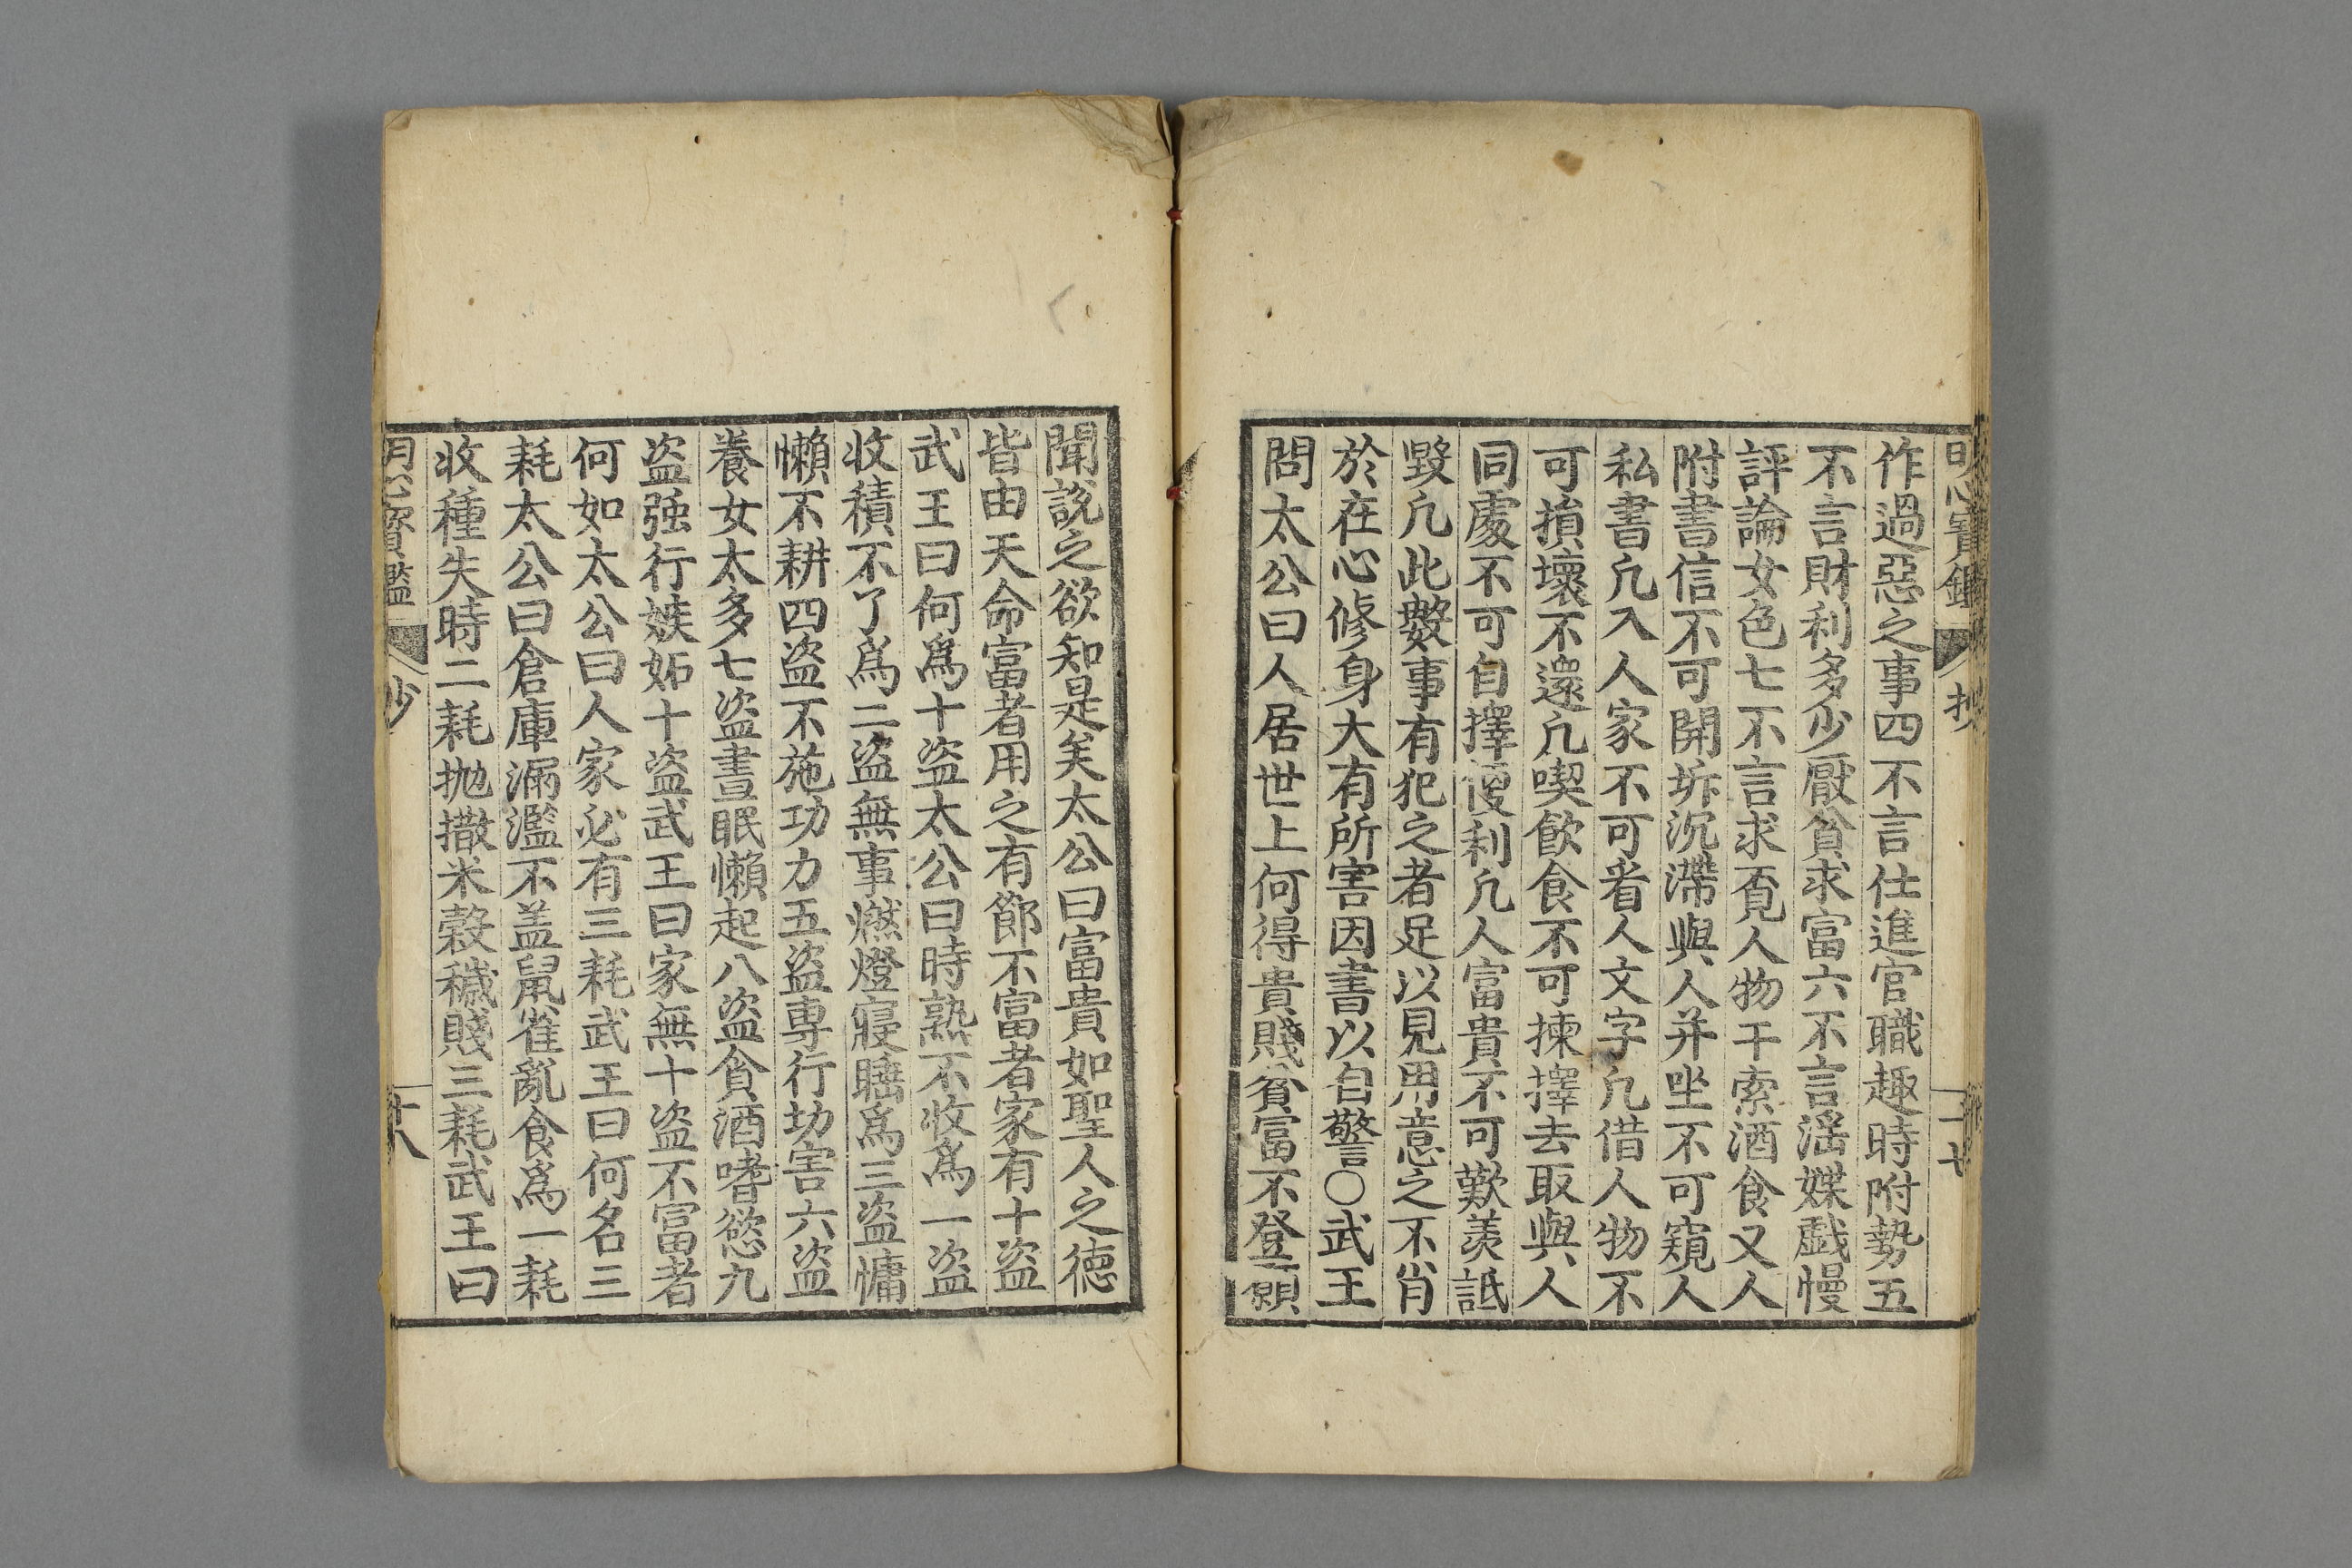 明心寶鑑 抄 二十七
作過惡之事四不言仕進官職趣時附勢五
不言財利多少厭貧求富六不言滛媟戱慢
評論女色七不言求覔人物干索酒食又人
附書信不可開坼沉滯與人并坐不可窺人
私書凢入人家不可看人文字凢借人物不
可損壞不還凢喫飮食不可揀擇去取與人
同處不可自擇便利凢人富貴不可歎羡詆
毀凢此數事有犯之者足以見用意之不肖
於在心修身大有所害因書以自警○武王
問太公曰人居世上何得貴賤貧富不登願
聞說之欲知是矣太公曰富貴如聖人之德
皆由天命富者用之有節不富者家有十盜
武王曰何爲十盜太公曰時熟不收爲一盜
收積不了爲二盜無事燃燈寢睡爲三盜慵
懶不耕四盜不施功力五盜專行㓛害六盜
養女太多七盜晝眠懶起八盜貪酒嗜慾九
盜强行嫉妬十盜武王曰家無十盜不富者
何如太公曰人家必有三耗武王曰何名三
耗太公曰倉庫漏濫不盖鼠雀亂食爲一耗
收種失時二耗抛撒米穀穢賤三耗武王曰
明心寶鑑 抄 十八